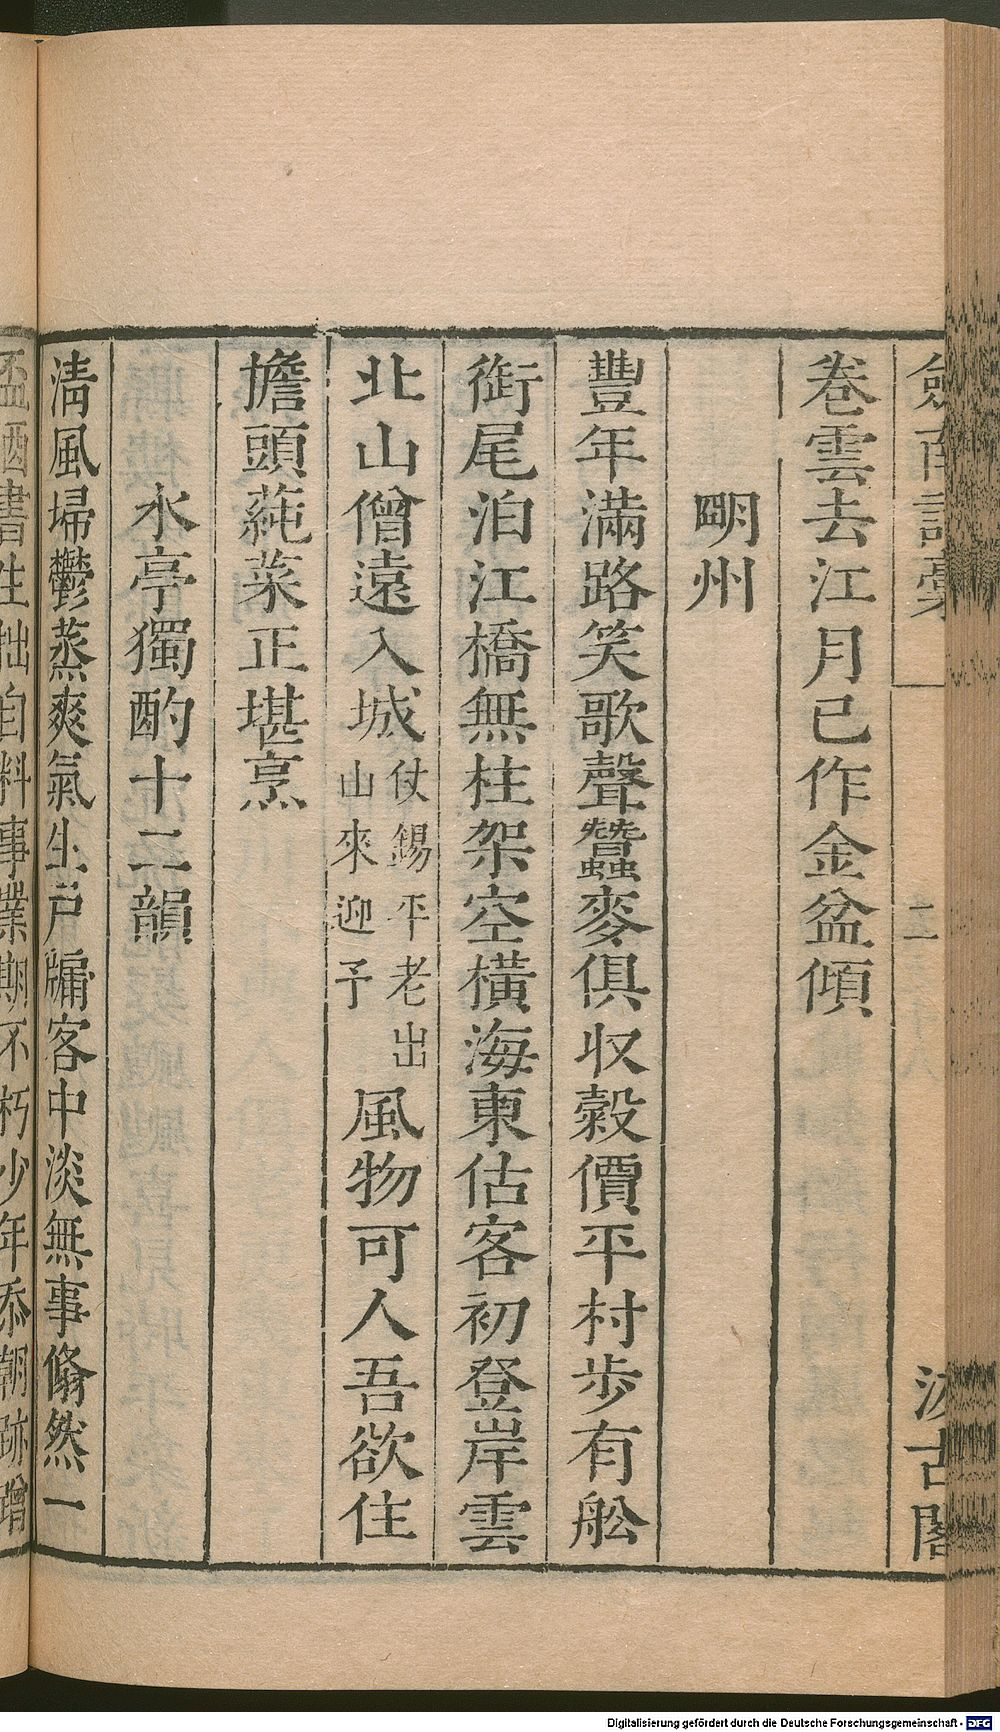 劍南詩藁
二
汲古閣
卷雲去江月已作金盆傾
明州
豐年滿路笑歌聲蠶麥俱收榖價平村步有舩
銜尾泊江橋無柱架空橫海東估客初登岸雲
北山僧遠入城
仗錫平老出
山來迎予
風物可人吾欲住
擔頭蒓菜正堪烹
水亭獨酌十二韻
淸風埽鬱蒸爽氣生戸牖客中淡無事翛然一
盃酒書生拙自料事業期不朽少年忝朝跡
Digitalisierung gefördert durch die Deutsche Forschungsgemeinschaft - DFG